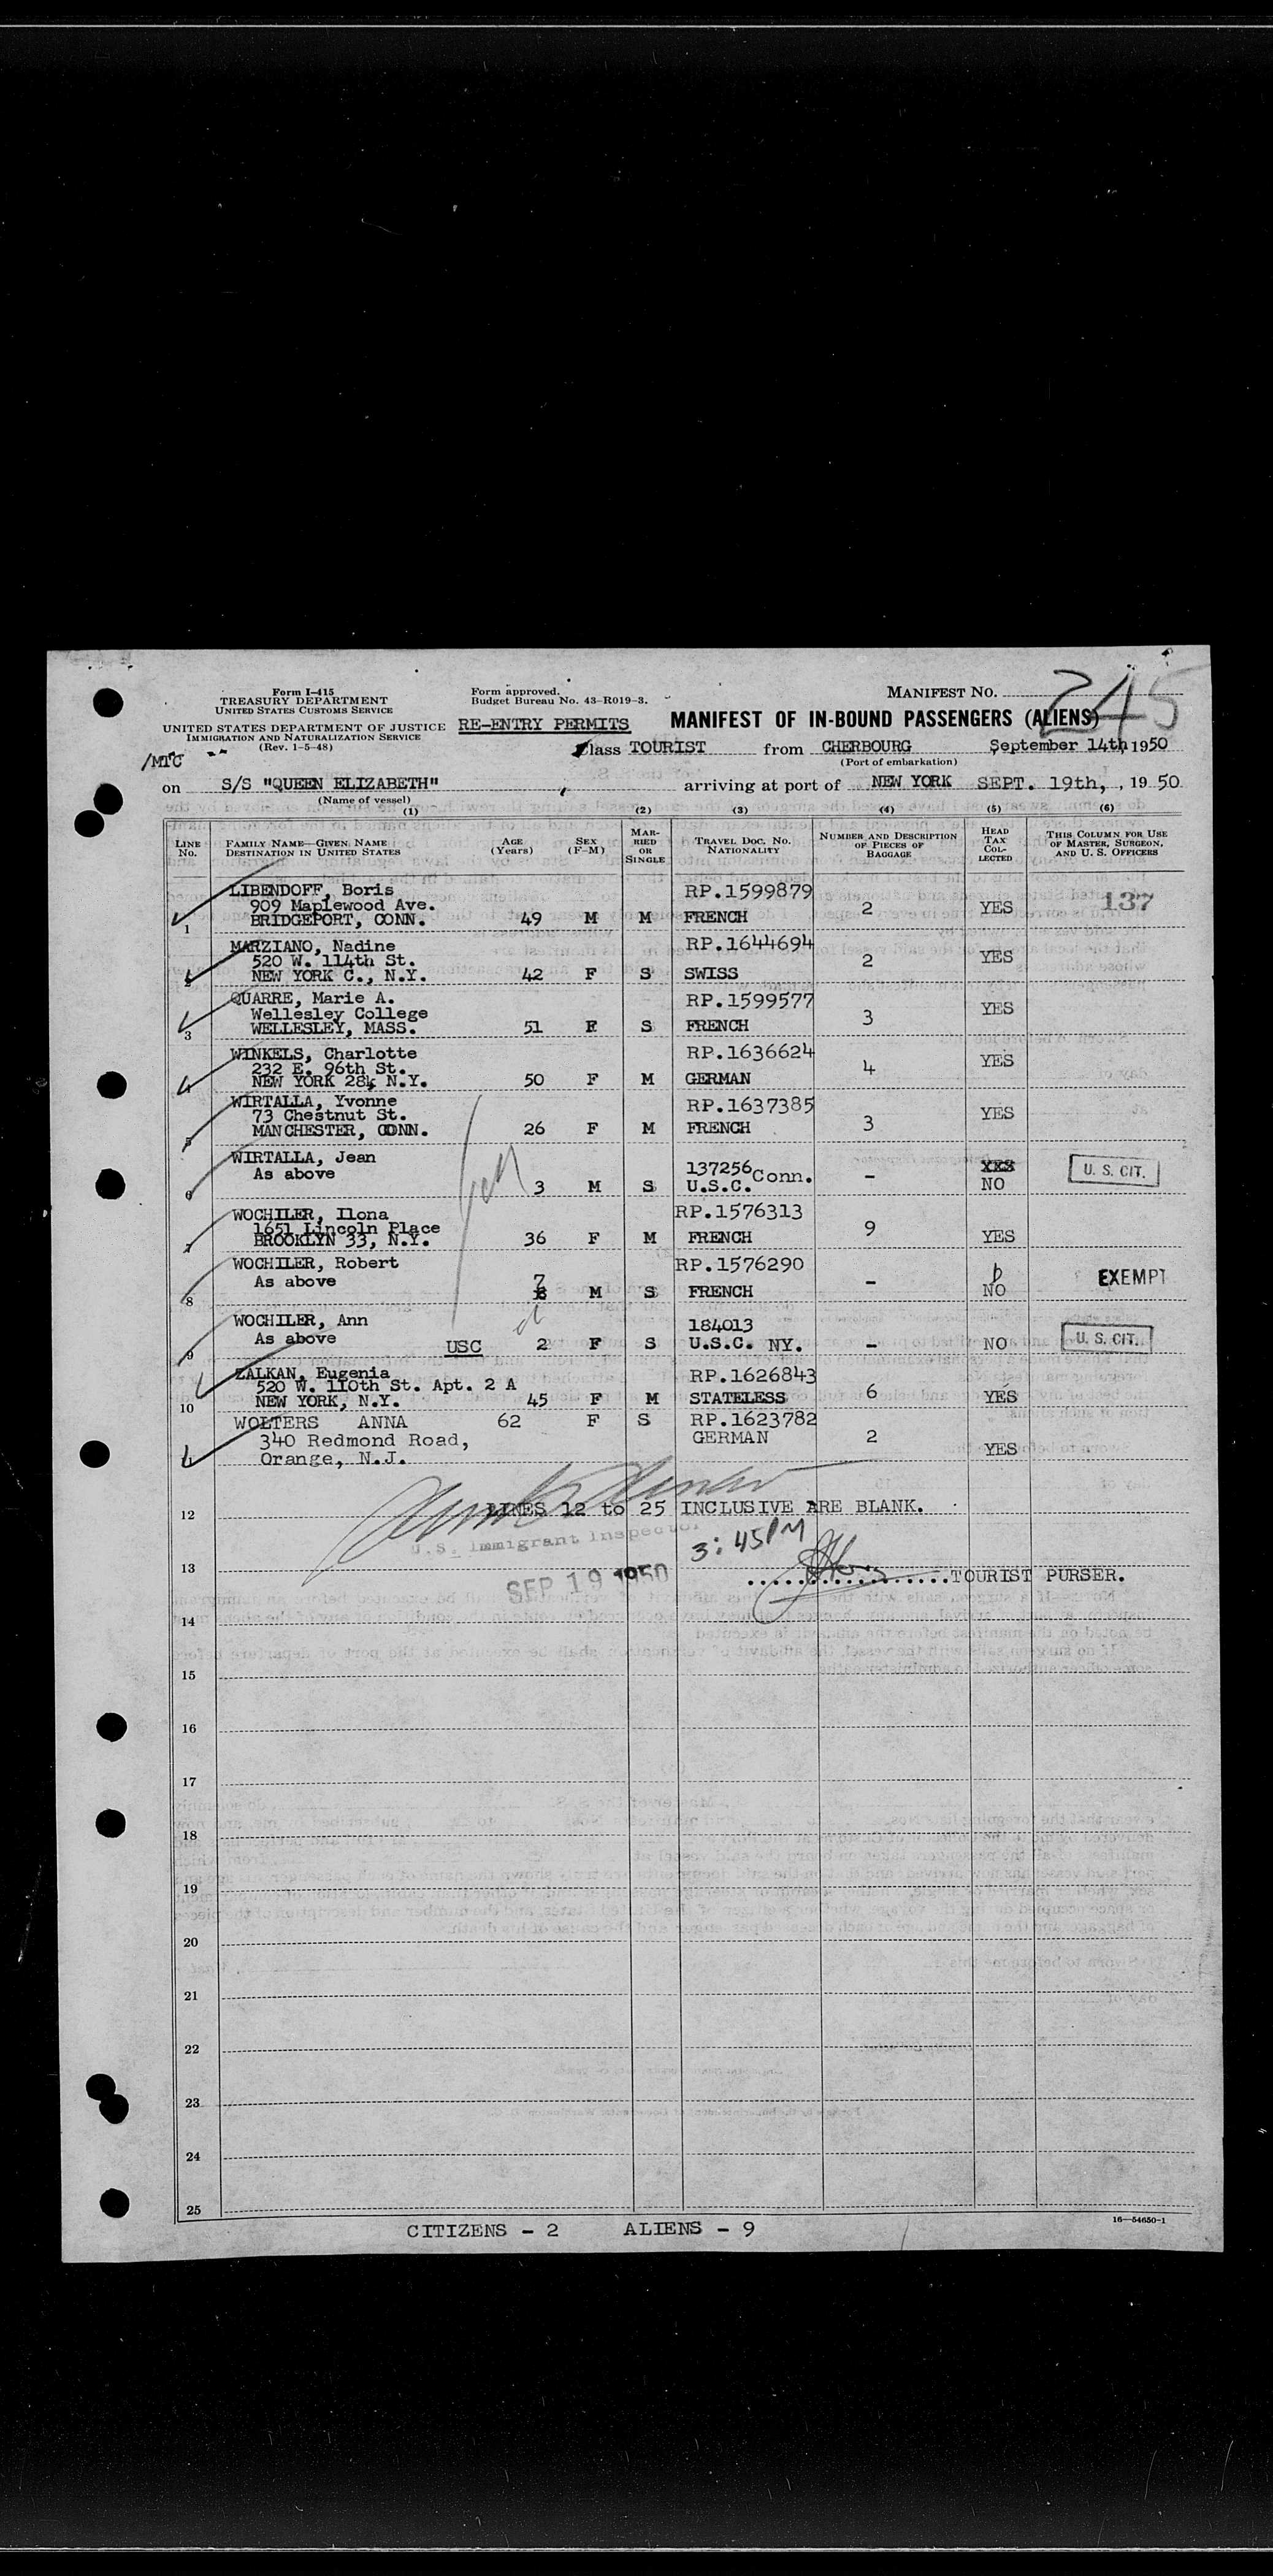 Form I-415
TREASURY DEPARTMENT
UNITED STATES CUSTOMS SERVICE
UNITED STATES DEPARTMENT OF JUSTICE
IMMIGRATION AND NATURALIZATION SERVICE
(Rev. 1-5-48)
Form approved.
Budget Bureau No. 43-R019-3.
RE-ENTRY PERMITS
MANIFEST No. 245
MANIFEST OF IN-BOUND PASSENGERS (ALIENS)
/MTC
Class TOURIST from CHERBOURG September 14th 1950
(Port of embarkation)
on S/S "QUEEN ELIZABETH" arriving at port of NEW YORK SEPT. 19th, , 19 50
(Name of vessel)
(1) (2) (3) (4) (5) (6)
LINE No. FAMILY NAME—GIVEN NAME DESTINATION IN UNITED STATES AGE (Years) SEX (F-M) MARRIED OR SINGLE TRAVEL DOC. No. NATIONALITY NUMBER AND DESCRIPTION OF PIECES OF BAGGAGE HEAD TAX COLLECTED THIS COLUMN FOR USE OF MASTER, SURGEON, AND U. S. OFFICERS
LIBENDOFF, Boris RP.1599879
909 Maplewood Ave. 2 YES 137
1 BRIDGEPORT, CONN. 49 M M FRENCH
MARZIANO, Nadine RP.1644694
520 W. 114th St. 2 YES
2 NEW YORK C., N.Y. 42 F S SWISS
QUARRE, Marie A. RP.1599577
Wellesley College 3 YES
3 WELLESLEY, MASS. 51 F S FRENCH
WINKELS, Charlotte RP.1636624
232 E. 96th St. 4 YES
4 NEW YORK 28, N.Y. 50 F M GERMAN
WIRTALLA, Yvonne RP.1637385
73 Chestnut St. 3 YES
5 MANCHESTER, CONN. 26 F M FRENCH
WIRTALLA, Jean
As above 137256 Conn. - YES U. S. CIT.
6 3 M S U.S.C. NO
WOCHILER, Ilona RP.1576313
1651 Lincoln Place 9
7 BROOKLYN 33, N.Y. 36 F M FRENCH YES
WOCHILER, Robert RP.1576290
As above 7 - EXEMPT
8 M S FRENCH NO
WOCHILER, Ann 184013
As above
9 USC 2 F S U.S.C. NY. - NO U. S. CIT.
ZALKAN, Eugenia RP.1626843
520 W. 110th St. Apt. 2 A 6
10 NEW YORK, N.Y. 45 F M STATELESS YES
WOLTERS ANNA 62 F S RP.1623782
340 Redmond Road, GERMAN 2 YES
11 Orange, N.J.
12 LINES 12 to 25 INCLUSIVE ARE BLANK.
U.S. Immigrant Inspector 3:45PM
13 SEP 19 1950 TOURIST PURSER.
14
15
16
17
18
19
20
21
22
23
24
25
CITIZENS - 2 ALIENS - 9
16—54650-1